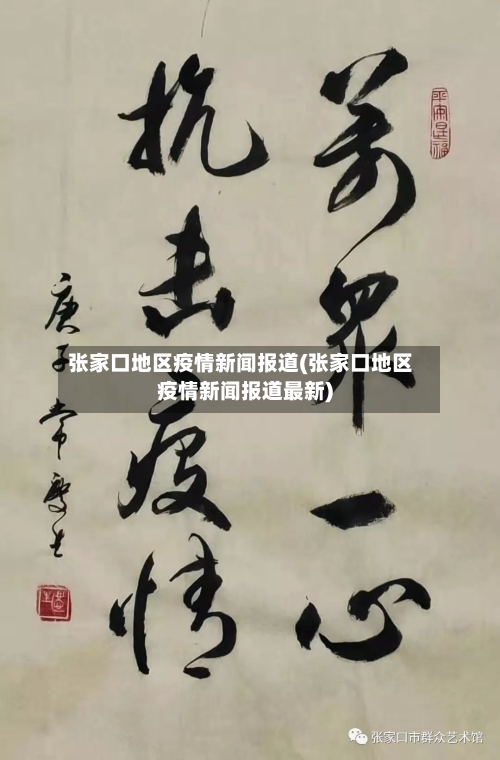 平安是福
萬眾一心
抗击疫情
庚子常
张家口地区疫情新闻报道(张家口地区
疫情新闻报道最新)
张家口市群众艺术馆